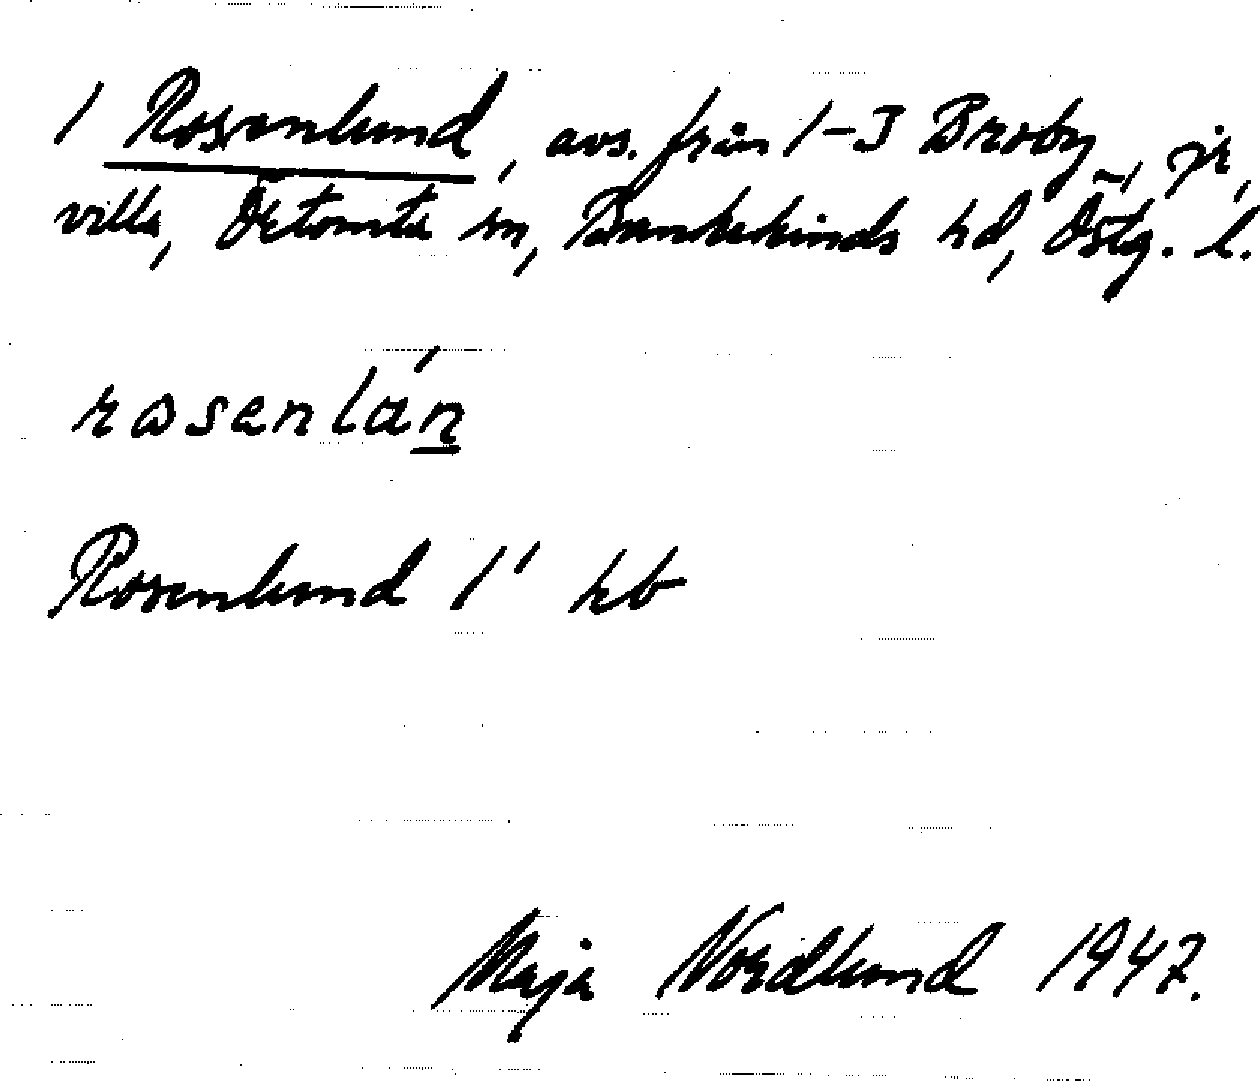 1 Rosenlund, avs. från 1-3 Broby, jr,
villa, Örtomta sn, Bankekinds hd, Östg. l.
rosenlán
Rosenlund 1' kb
Maja Nordlund 1947.